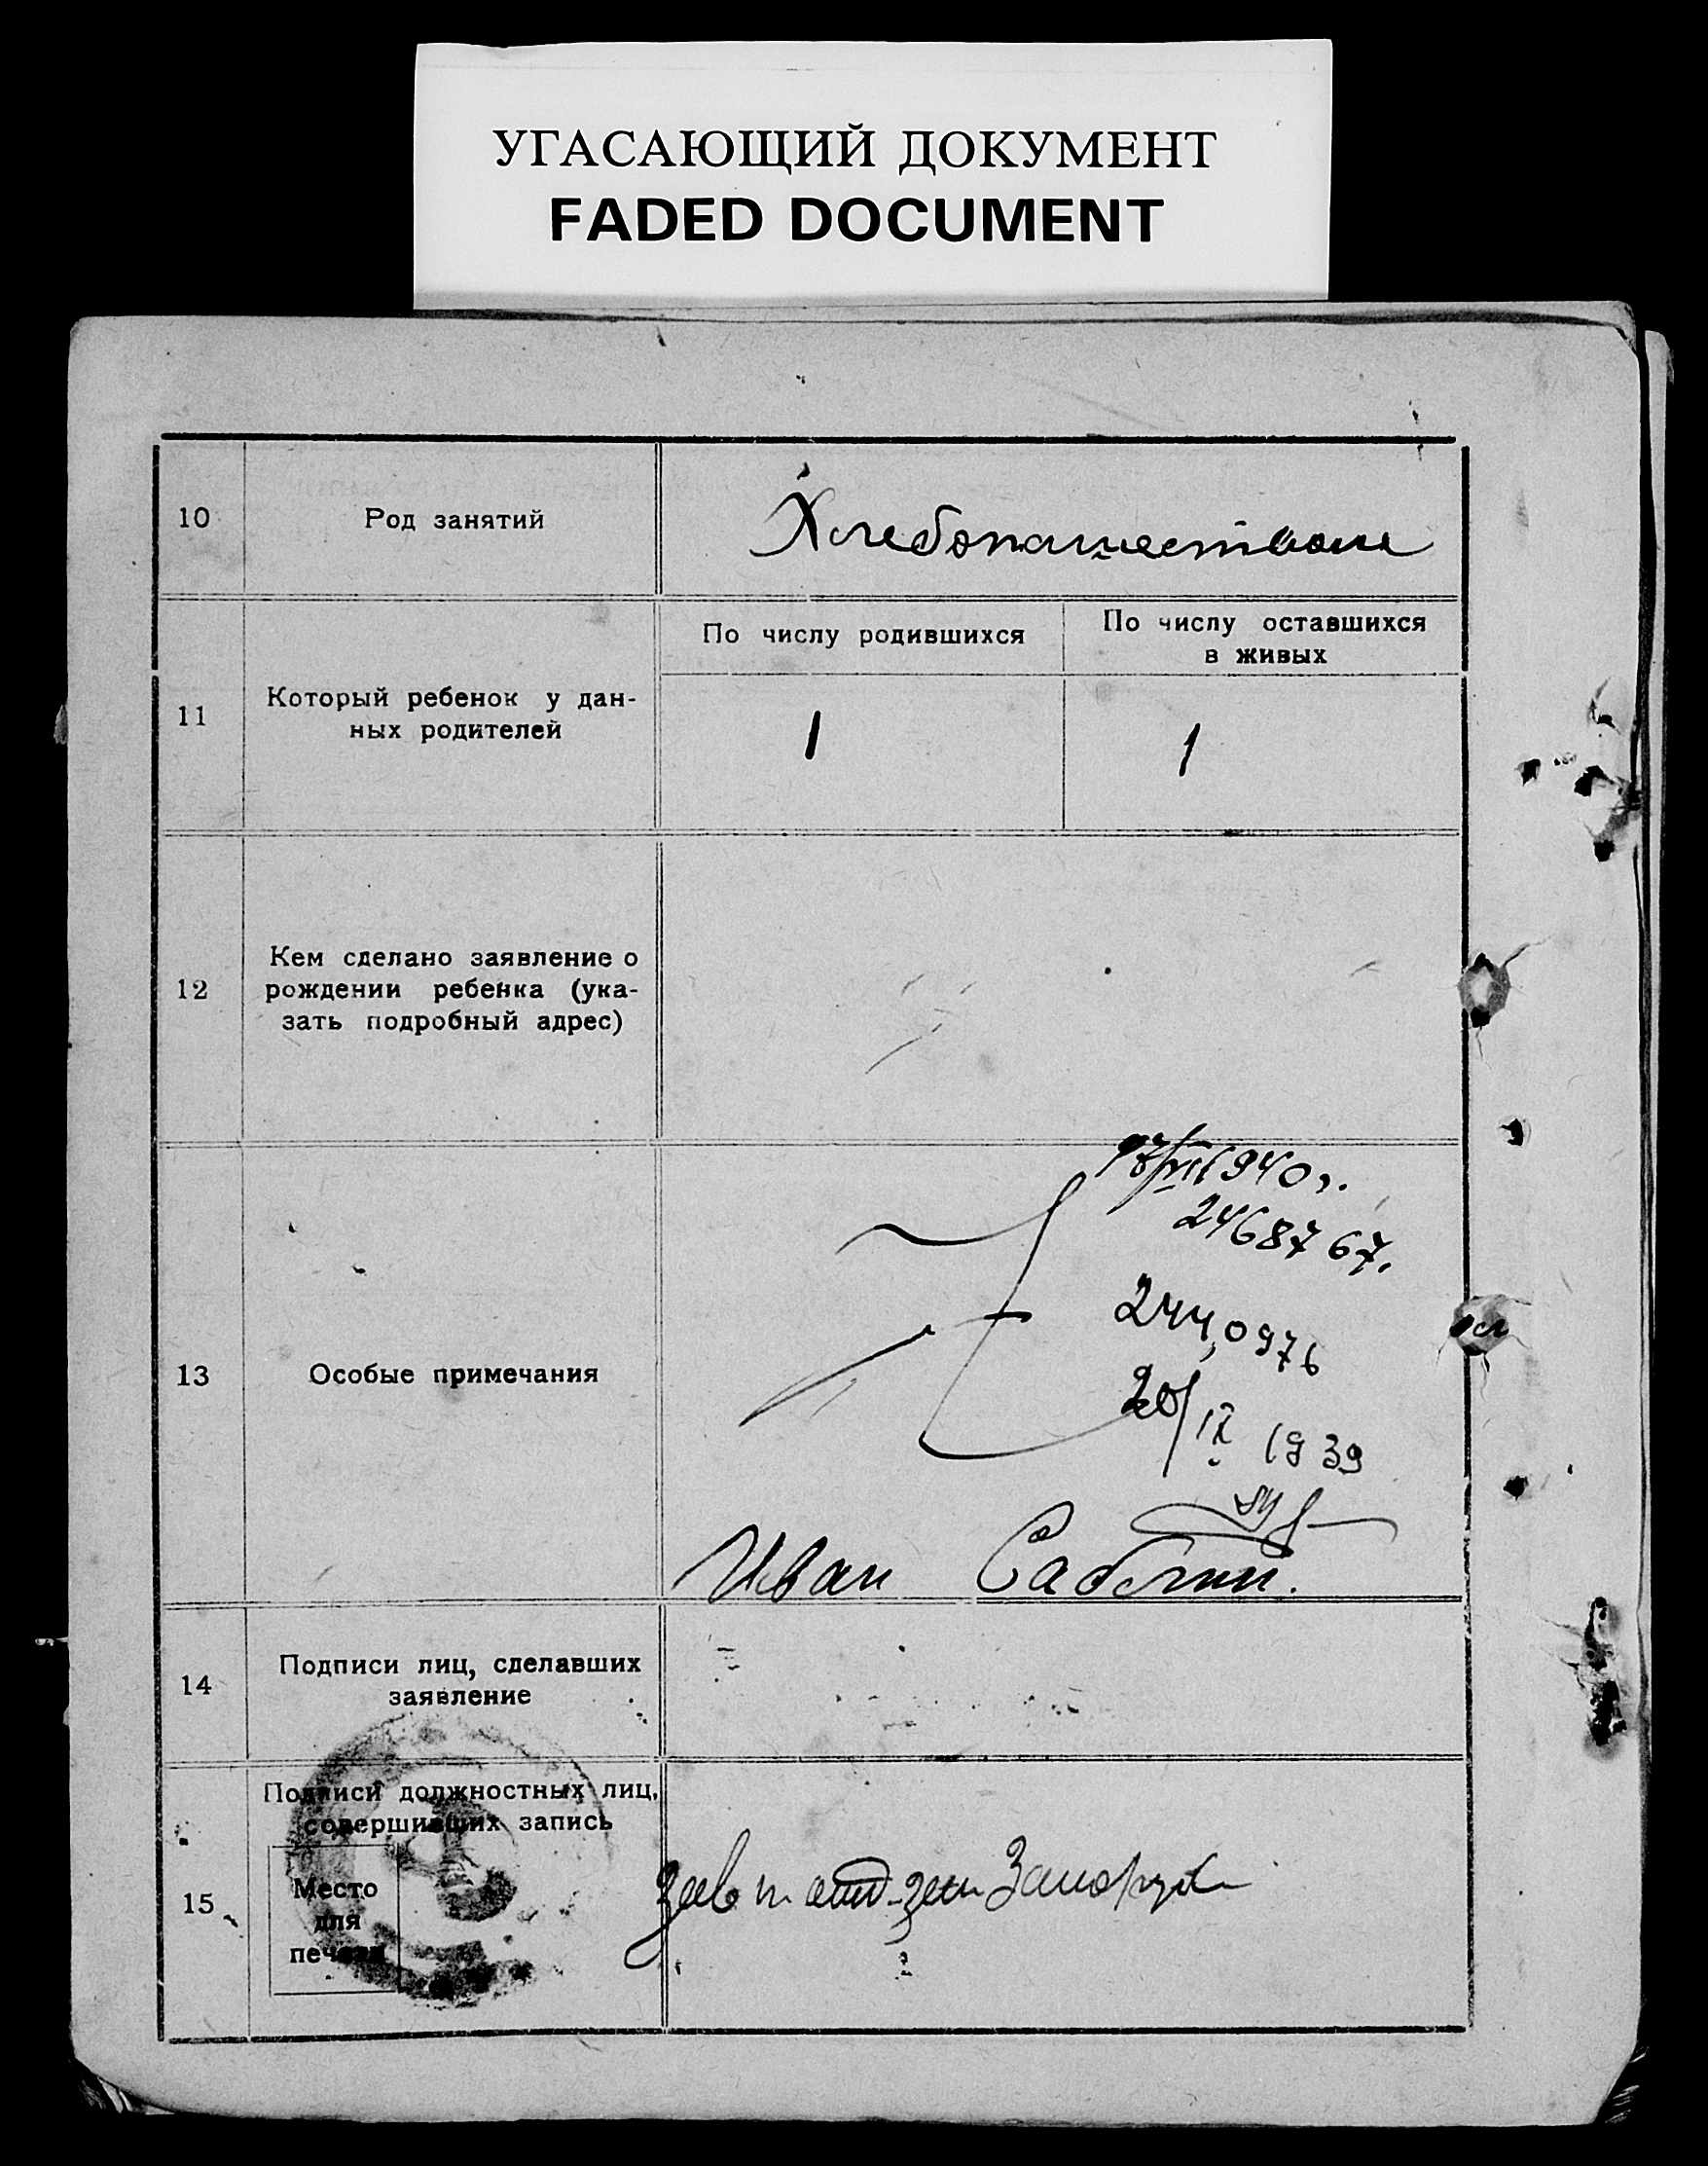 УГАСАЮЩИЙ ДОКУМЕНТ
FADED DOCUMENT
10
Род занятий
Хлебопашеством
11
Который ребенок у дан-
ных родителей
По числу родившихся
По числу оставшихся
в живых
1
1
12
Кем сделано заявление о
рождении ребенка (ука-
зать подробный адрес)
13
Особые примечания
1940 г.
2468767.
244,0976
20/IX 1939
Иван Саблин.
14
Подписи лиц, сделавших
заявление
15
Подписи должностных лиц,
совершивших запись
Место
для
печати